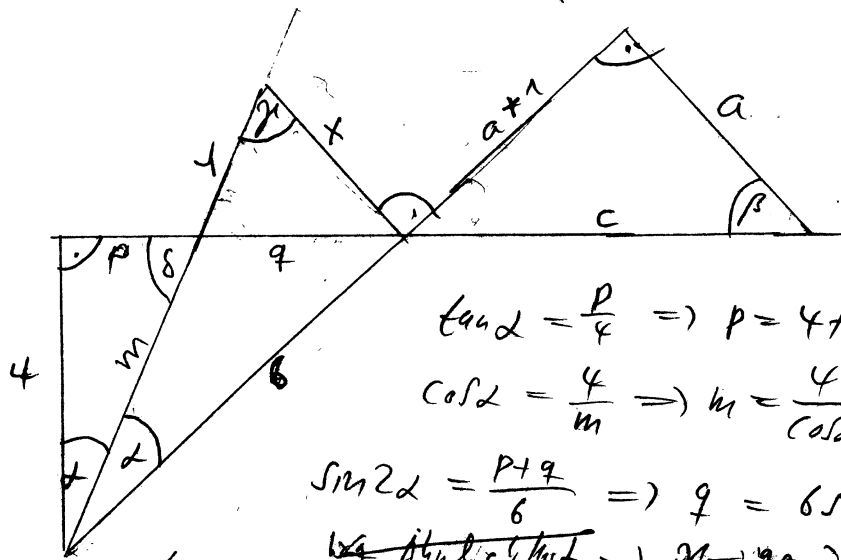 γ
x
y
a+1
a
β
c
p
δ
q
4
m
6
α
α
tanα = p/4 => p = 4
cosα = 4/m => m = 4/cosα
sin2α = p+q/6 => q = 6s